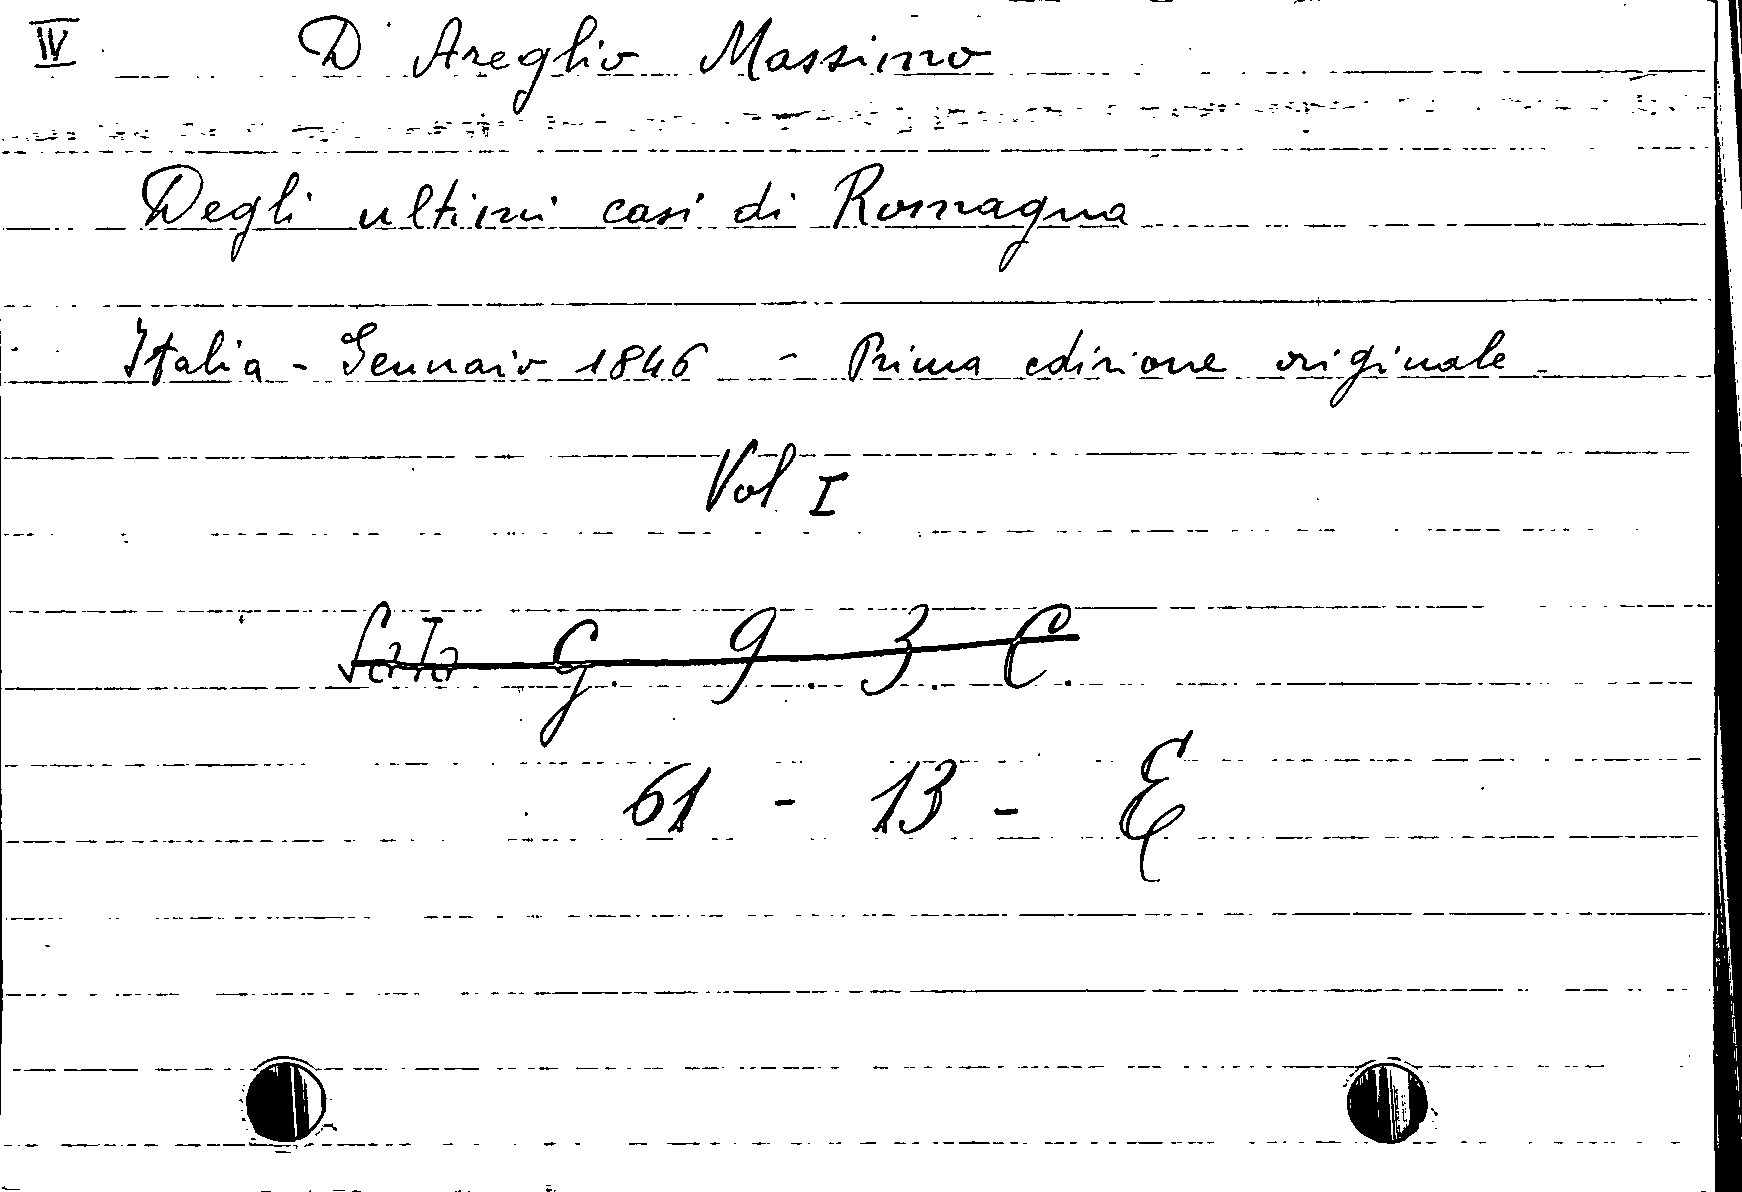 IV D'Azeglio Massimo
Degli ultimi casi di Romagna
Italia - Gennaio 1846 - Prima edizione originale
Vol I
Sala G. 9. 3. C.
61 - 13 - E